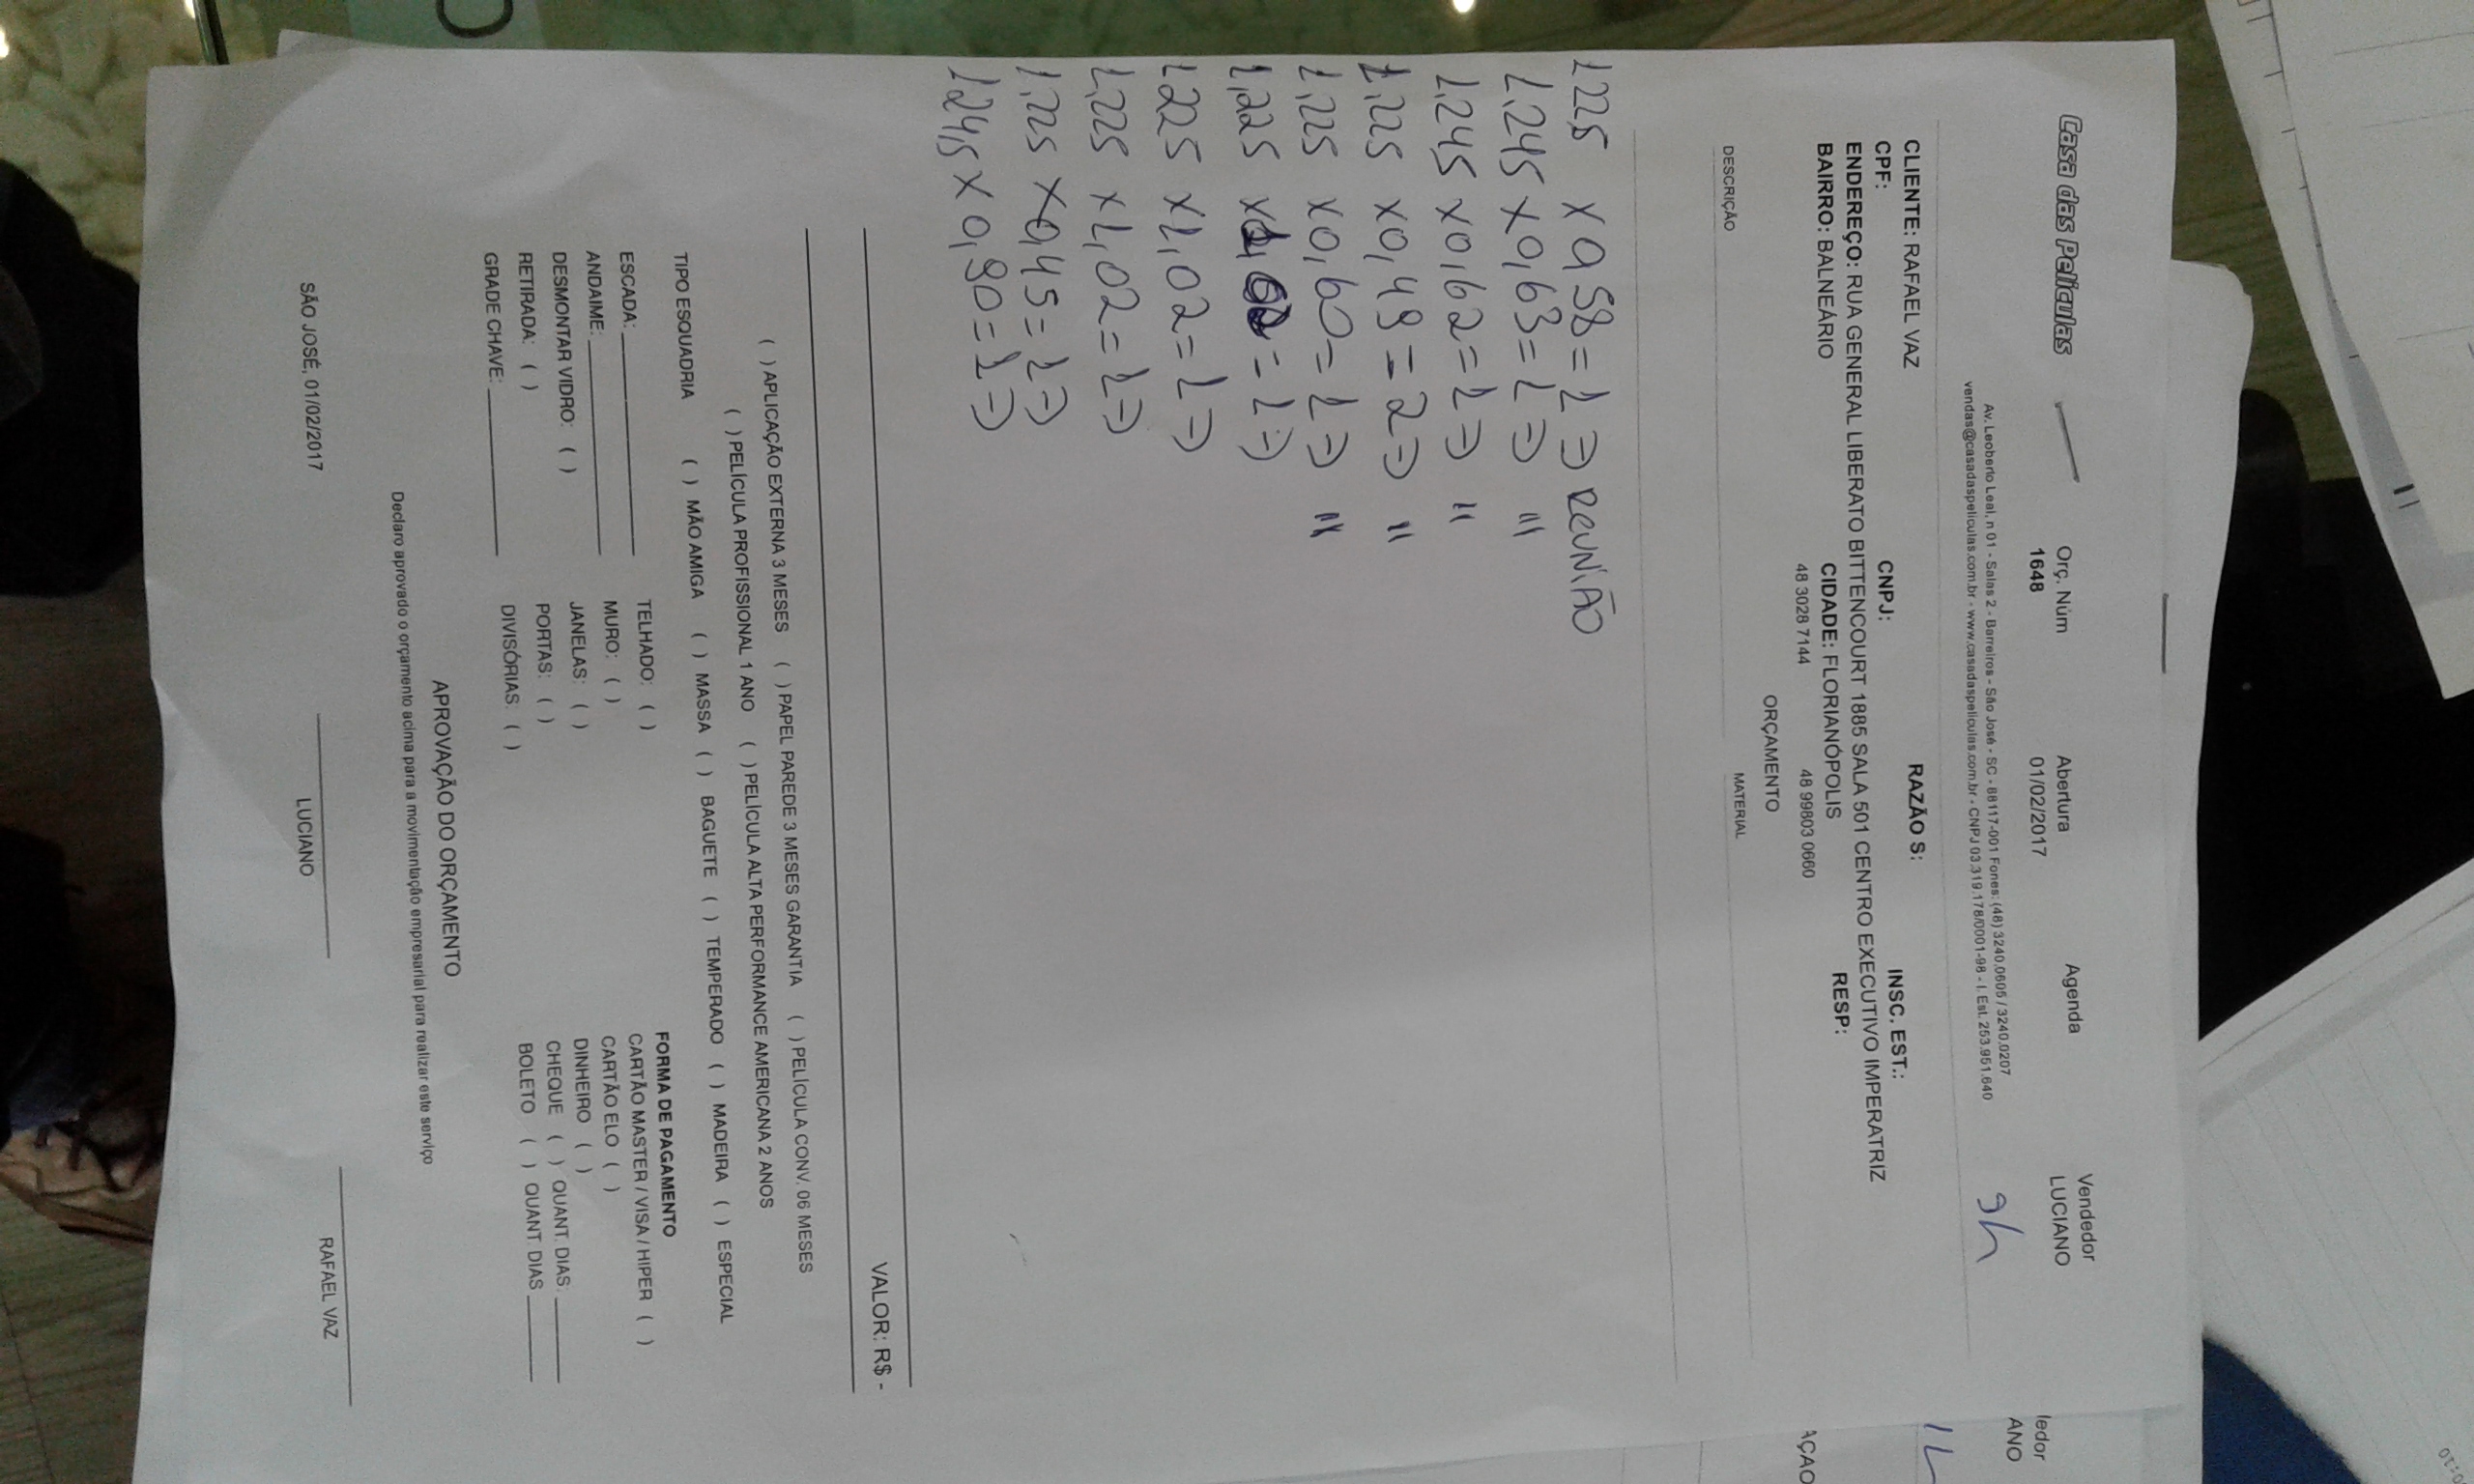 Casa das Películas
Orç. Núm Abertura Agenda Vendedor
1648 01/02/2017 LUCIANO
Av. Leoberto Leal, n 01 - Salas 2 - Barreiros - São José - SC - 88117-001 Fones: (48) 3240.0606 / 3240.0207
vendas@casadaspeliculas.com.br - www.casadaspeliculas.com.br - CNPJ 03.319.178/0001-98 - I. Est. 253.951.640
9h
CLIENTE: RAFAEL VAZ RAZÃO S:
CPF: CNPJ: INSC. EST.:
ENDEREÇO: RUA GENERAL LIBERATO BITTENCOURT 1885 SALA 501 CENTRO EXECUTIVO IMPERATRIZ
BAIRRO: BALNEÁRIO CIDADE: FLORIANÓPOLIS RESP:
48 3028 7144 48 99803 0660
ORÇAMENTO
DESCRIÇÃO MATERIAL
1225 x 0,58 = 1 => REUNIÃO
1,245 x 0,63 = 1 => "
1,245 x 0,62 = 1 => "
1,225 x 0,49 = 2 => "
1,225 x 0,60 = 1 => "
1,225 x = 1 =>
1,225 x 1,02 = 1 =>
1,225 x 1,02 = 1 =>
1,225 x 0,45 = 1 =>
1,245 x 0,90 = 1 =>
VALOR: R$ -
( ) APLICAÇÃO EXTERNA 3 MESES ( ) PAPEL PAREDE 3 MESES GARANTIA ( ) PELÍCULA CONV. 06 MESES
( ) PELÍCULA PROFISSIONAL 1 ANO ( ) PELÍCULA ALTA PERFORMANCE AMERICANA 2 ANOS
TIPO ESQUADRIA ( ) MÃO AMIGA ( ) MASSA ( ) BAGUETE ( ) TEMPERADO ( ) MADEIRA ( ) ESPECIAL
FORMA DE PAGAMENTO
ESCADA: TELHADO: ( ) CARTÃO MASTER / VISA / HIPER ( )
ANDAIME: MURO: ( ) CARTÃO ELO ( )
DESMONTAR VIDRO: ( ) JANELAS: ( ) DINHEIRO ( )
RETIRADA: ( ) PORTAS: ( ) CHEQUE ( ) QUANT. DIAS:
GRADE CHAVE: DIVISÓRIAS: ( ) BOLETO ( ) QUANT. DIAS
APROVAÇÃO DO ORÇAMENTO
Declaro aprovado o orçamento acima para a movimentação empresarial para realizar este serviço
SÃO JOSÉ, 01/02/2017 LUCIANO RAFAEL VAZ
ledor
ANO
AÇAO